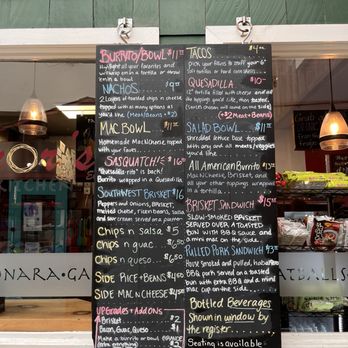 BURRITO/BOWL $11
Highlight all your favorites and
wrap'em in a tortilla or throw
'em in a bowl
NACHOS
2 layers of toasted chips n cheese
topped with as many options as
you'd like (Meat/Beans +$2)
MAC BOWL
Homemade Mac N Cheese, topped
with your faves.
SASQUATCH!! $16
"Quesadilla-rito" is back!
Burrito wrapped in a Quesadilla
SOUTHWEST BRISKET $16
Peppers and onions, BRISKET,
melted cheese, rican beans, salsa
and sour cream served on a
Chips n salsa $5
Chips n guac
Chips n queso
Side RICE+BEANS
Side MAC N CHEESE
UPGRADES + ADD ONS
Brisket $2
Bacon, Guac, Queso $1
Make a burrito or bowl
everything $2
TACOS
Pick your faves to stuff your 6"
soft tortillas or hard corn shells
QUESADILLA $10
12" tortilla filled with cheese and
the toppings you'd like, then toasted.
(+$2 Meat + Beans)
SALAD BOWL $11
shredded lettuce base topped with
any and all meats/veggies
you'd like.
All American Burrito $13
Mac N Cheese, Brisket, and
all your other toppings wrapped
in a tortilla
BRISKET SANDWICH $15
SLOW-SMOKED BRISKET
SERVED OVER A TOASTED
BUN WITH BBQ SAUCE and
a mini mac on the side.
PULLED PORK SANDWICH $13
House roasted and pulled, tossed in
BBQ pork served on a toasted
bun with extra BBQ and a mini
mac cup on the side.
Bottled Beverages
Shown in window by
the register
Seating is available
KITCHEN
ONARA·GA
EATBALLS